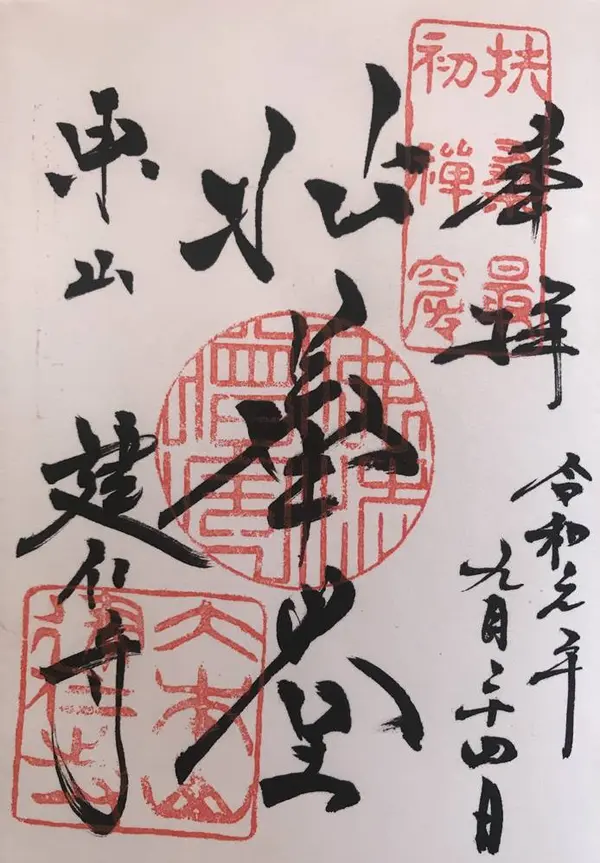 扶桑最
初禪窟
奉拝
令和元年
九月二十四日
拈華堂
佛法
僧寶
東山
建仁寺
大本山
建仁寺